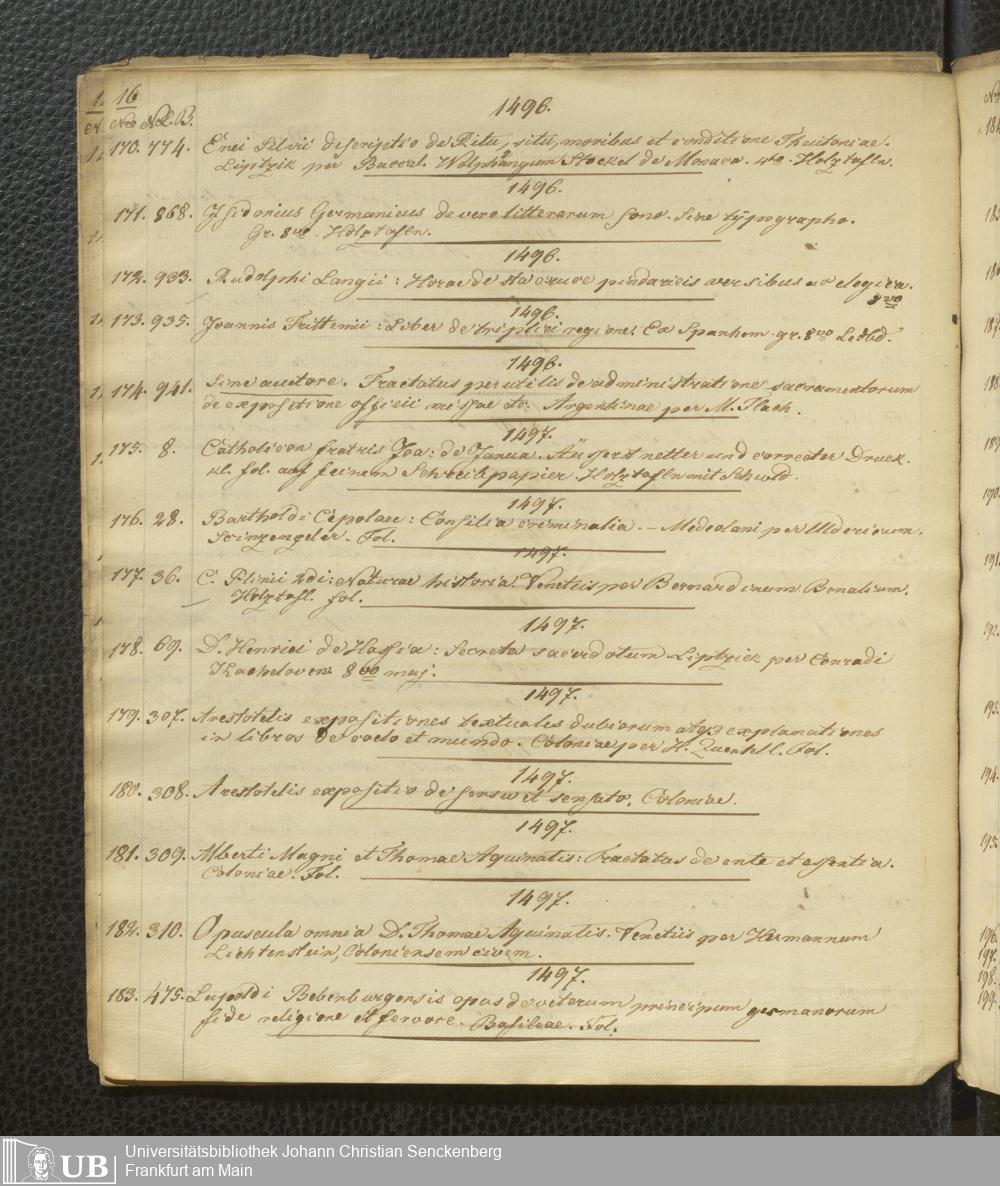 16
1496.
Nro N.R.B.
170. 774. Enei Silvii descriptio de Ritu, situ, moribus et conditione Theutoniae.
Liptzik per Baccal. Wolphangum Stockel de Monaco. 4to. Holztafln.
1496.
171. 868. Ysidorius Germanicus de vero litterarum sono. Sine typographo.
Gr. 8vo. Holztafln.
1496.
172. 933. Rudolphi Langii: Horae de sta cruce pindaricis versibus ac elegiera.
8vo
1496.
173. 935. Joannis Trittemii: Liber de triplici regione. Ex Spanhem. gr. 8vo Ledbd.
1496.
174. 941. Sine auctore. Tractatus perutilis de administratione sacramentorum
de expositione officii missae etc. Argentinae per M. Flach.
1497.
175. 8. Catholicon fratris Joa: de Janua. Äusserst netter und correcter Druck.
kl. fol. auf feinem Schreibpapier. Holztafln mit Schwld.
1497.
176. 28. Bartholdi Cepolae: Consilia criminalia. – Medeolani per Uldericum.
Scinzengeler. Fol.
1497.
177. 36. C. Plinii 2di: Naturae historia. Venetiis per Bernardinum Benalium.
Holztafl. fol.
1497.
178. 69. D. Henrici de Hassia: Secreta sacerdotum Liptzick per Conradi
Kacheloven. 8vo maj:
1497.
179. 307. Arestotelis expositiones textuales dubiorum atq3 explanationes
in libros de coelo et mundo. Coloniae per H. Quentell. Fol.
1497.
180. 308. Arestotelis expositio de sensu et sensato. Coloniae.
1497.
181. 309. Alberti Magni et Thomae Aquinatis: Tractatus de ente et essentia.
Coloniae. Fol.
1497.
182. 310. Opuscula omnia D. Thomae Aquinatis. Venetiis per Hermannum
Lichtenstein, Coloniensem civem.
1497.
183. 475. Lupoldi Bebenburgensis opus de veterum principum germanorum
fide religione et fervore. Basileae. Fol.
Universitätsbibliothek Johann Christian Senckenberg
Frankfurt am Main
UB